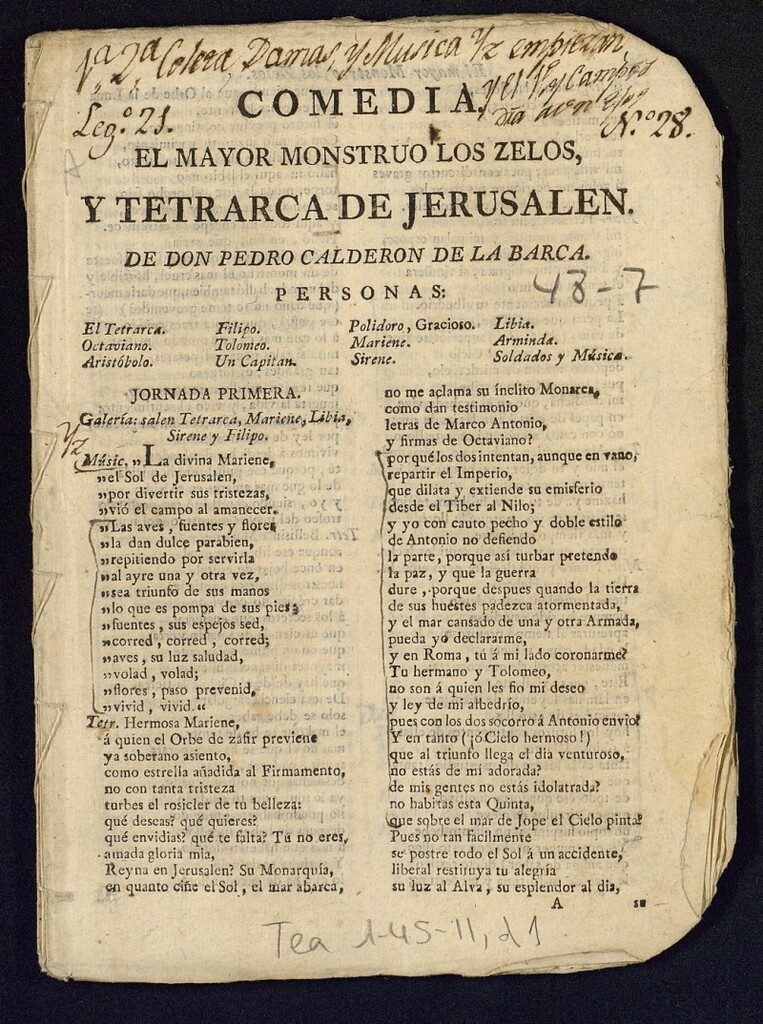 1ª 2ª Colera, Damas, y Musica Yz empiezan,
y el
Leg.º 21.
N.º 28.
COMEDIA.
EL MAYOR MONSTRUO LOS ZELOS,
Y TETRARCA DE JERUSALEN.
DE DON PEDRO CALDERON DE LA BARCA.
PERSONAS:
48-7
El Tetrarca. Filipo. Polidoro, Gracioso. Libia.
Octaviano. Tolomeo. Mariene. Arminda.
Aristóbolo. Un Capitan. Sirene. Soldados y Música.
JORNADA PRIMERA.
Galería: salen Tetrarca, Mariene, Libia,
Sirene y Filipo.
Yz
Músic. „La divina Mariene,
„el Sol de Jerusalen,
„por divertir sus tristezas,
„vió el campo al amanecer.
„Las aves, fuentes y flores
„la dan dulce parabien,
„repitiendo por servirla
„al ayre una y otra vez,
„sea triunfo de sus manos
„lo que es pompa de sus pies;
„fuentes, sus espejos sed,
„corred, corred, corred;
„aves, su luz saludad,
„volad, volad;
„flores, paso prevenid,
„vivid, vivid.“
Tetr. Hermosa Mariene,
á quien el Orbe de zafir previene
ya soberano asiento,
como estrella añadida al Firmamento,
no con tanta tristeza
turbes el rosicler de tu belleza:
qué deseas? qué quieres?
qué envidias? qué te falta? Tú no eres,
amada gloria mia,
Reyna en Jerusalen? Su Monarquía,
en quanto ciñe el Sol, el mar abarca,
no me aclama su ínclito Monarca,
como dan testimonio
letras de Marco Antonio,
y firmas de Octaviano?
porqué los dos intentan, aunque en vano,
repartir el Imperio,
que dilata y extiende su emisferio
desde el Tiber al Nilo;
y yo con cauto pecho y doble estilo
de Antonio no defiendo
la parte, porque así turbar pretendo
la paz, y que la guerra
dure, porque despues quando la tierra
de sus huestes padezca atormentada,
y el mar cansado de una y otra Armada,
pueda yo declararme,
y en Roma, tú á mi lado coronarme?
Tu hermano y Tolomeo,
no son á quien les fio mi deseo
y ley de mi albedrío,
pues con los dos socorro á Antonio envio?
Y en tanto (¡ó Cielo hermoso!)
que al triunfo llega el dia venturoso,
no estás de mí adorada?
de mis gentes no estás idolatrada?
no habitas esta Quinta,
que sobre el mar de Jope el Cielo pinta?
Pues no tan facilmente
se postre todo el Sol á un accidente,
liberal restituya tu alegría
su luz al Alva, su esplendor al dia,
A su
Tea 1-45-11, d1